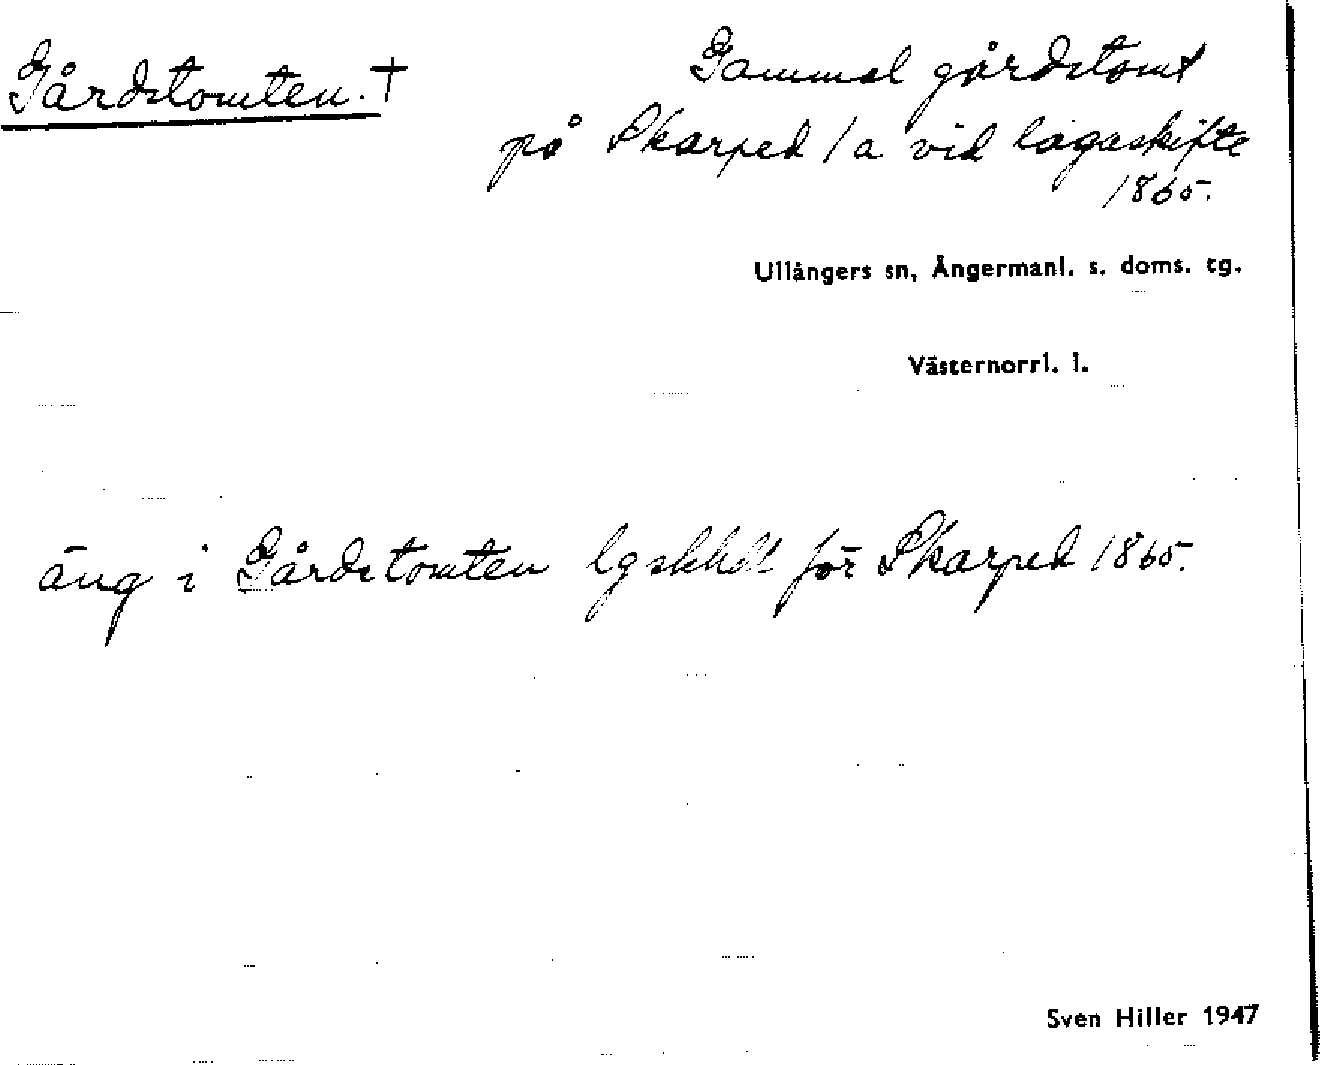 Gårdstomten. †
Gammal gårdstomt
på Skarped 1a vid lagaskifte
1865.
Ullångers sn, Ångermanl. s. doms. tg.
Västernorrl. l.
äng i Gårdstomten lgskhdl för Skarped 1865.
Sven Hiller 1947